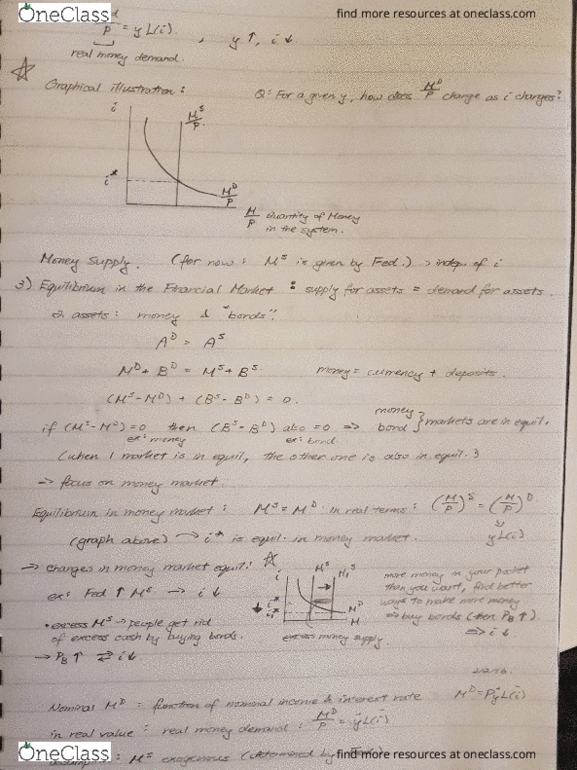 OneClass
find more resources at oneclass.com
P = y L(i). , y ↑, i ↓
real money demand.
Graphical illustration :
Q: For a given y, how does M^D/P change as i changes?
i
M^S/P
i*
M^D/P
M/P Quantity of Money
in the system.
Money Supply. (for now : M^S is given by Fed.) → indep. of i
3) Equilibrium in the Financial Market : supply for assets = demand for assets.
2 assets : money & "bonds".
A^D = A^S
M^D + B^D = M^S + B^S. money = currency + deposits.
(M^S - M^D) + (B^S - B^D) = 0.
if (M^S - M^D) = 0 then (B^S - B^D) also = 0 => money bond } markets are in equil.
ex: money ex: bond
(when 1 market is in equil, the other one is also in equil.)
→ focus on money market.
Equilibrium in money market : M^S = M^D in real terms : (M/P)^S = (M/P)^D
(graph above) → i* is equil. in money market.
y L(i)
→ changes in money market equil:
i M^S M_1^S
M^D
M
excess money supply.
more money in your pocket
than you want, find better
ways to make more money
⇒ buy bonds (then P_B ↑)
⇒ i ↓
ex: Fed ↑ M^S → i ↓
• excess M^S → people get rid
of excess cash by buying bonds.
→ P_B ↑ ⇄ i ↓.
Nominal M^D = function of nominal income & interest rate M^D = P y L(i)
in real value : real money demand : M^D/P = y L(i)
OneClass
: M^S exogenous (determined by
find more resources at oneclass.com